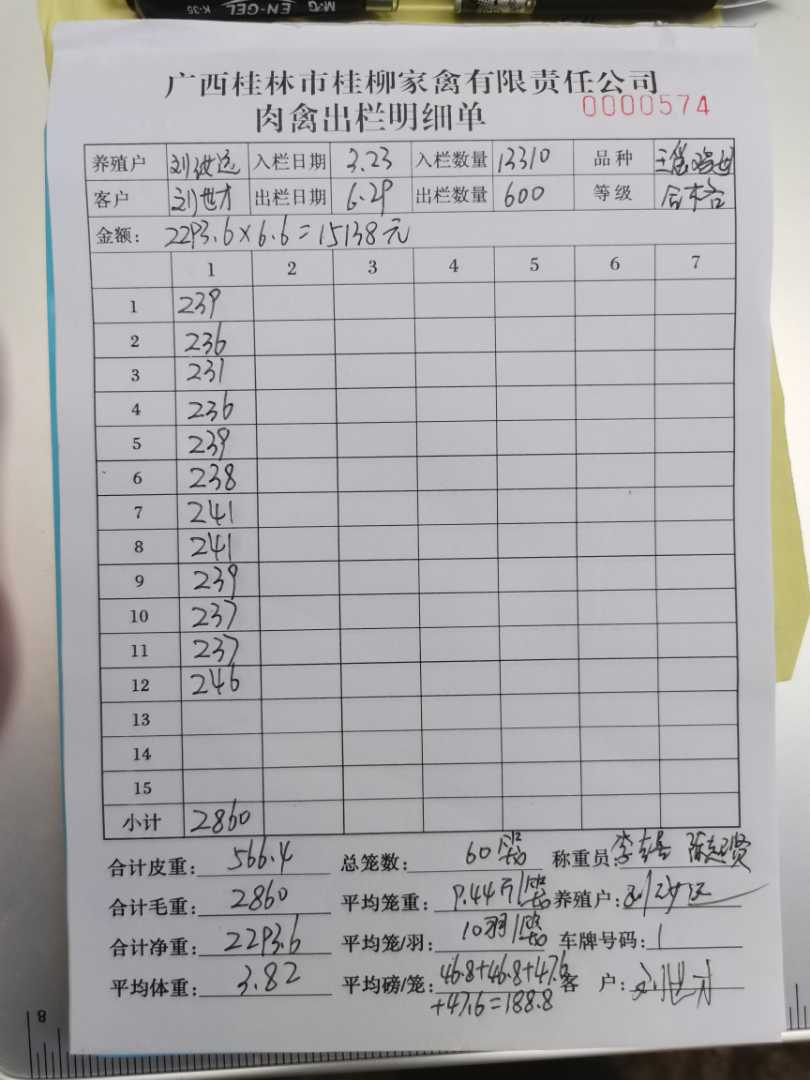 M&G EN-GEL K-35
广西桂林市桂柳家禽有限责任公司
肉禽出栏明细单 0000574
养殖户 入栏日期 3.23 入栏数量 13310 品种
客户 刘世才 出栏日期 6.29 出栏数量 600 等级 合格
金额: 2293.6×6.6=15138元
1 2 3 4 5 6 7
1 239
2 236
3 231
4 236
5 239
6 238
7 241
8 241
9 239
10 237
11 237
12 246
13
14
15
小计 2860
合计皮重: 566.4 总笼数: 60笼 称重员:
合计毛重: 2860 平均笼重: 9.44斤/笼 养殖户:
合计净重: 2293.6 平均笼/羽: 10羽/笼 车牌号码: 1
平均体重: 3.82 平均磅/笼: 46.8+46.8+47.6 客 户: 刘世才
+47.6=188.8
8